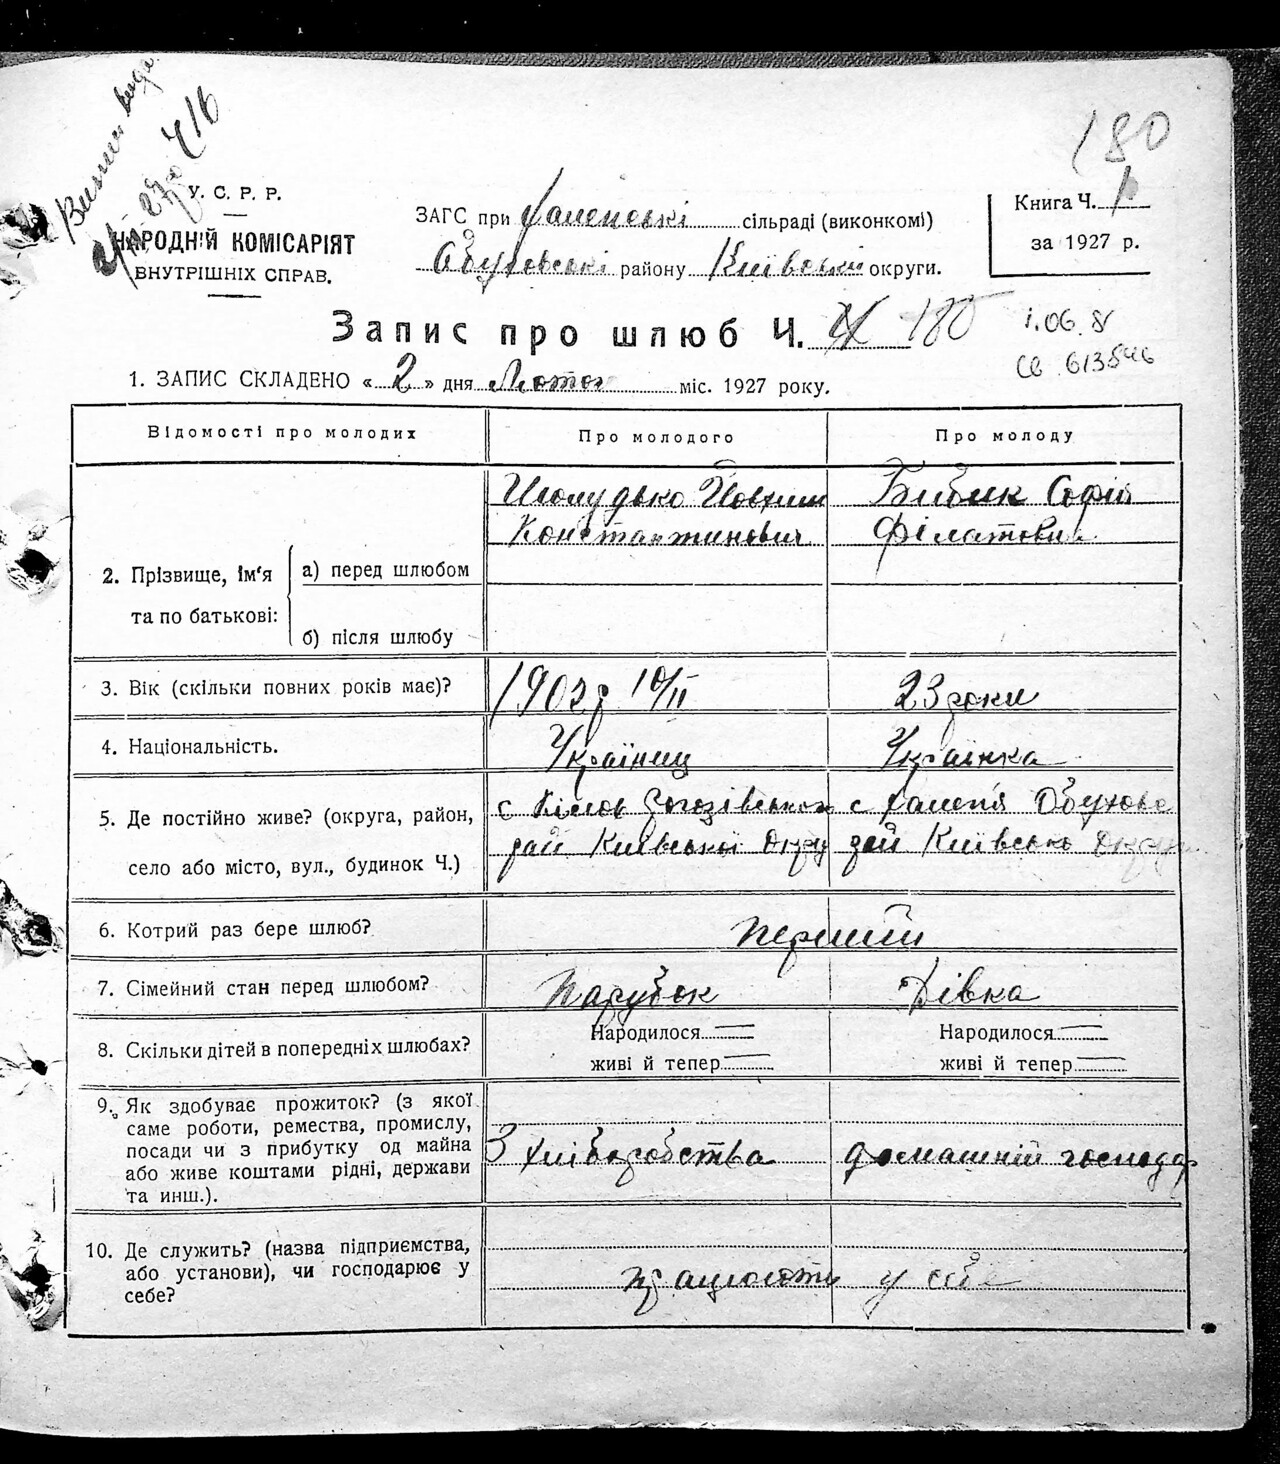 180
У. С. Р. Р.
НАРОДНІЙ КОМІСАРІЯТ
ВНУТРІШНІХ СПРАВ.
ЗАГС при Халепські сільраді (виконкомі)
Обухівські району Київськи округи.
Книга Ч. 1
за 1927 р.
Запис про шлюб Ч. 180
1. ЗАПИС СКЛАДЕНО «2» дня Лютого міс. 1927 року.
Відомості про молодих
Про молодого
Про молоду
2. Прізвище, ім'я та по батькові:
а) перед шлюбом
б) після шлюбу
Шолудько Йовхим
Константинович
Бибик Софія
Філатовна
3. Вік (скільки повних років має)?
1902 р 10/II
23 роки
4. Національність.
Українец
Українка
5. Де постійно живе? (округа, район,
село або місто, вул., будинок Ч.)
с Рогозівськой
рай Київської Округ
с Халепя Обухово
рай Київсько Округи
6. Котрий раз бере шлюб?
перший
7. Сімейний стан перед шлюбом?
Парубок
Дівка
8. Скільки дітей в попередніх шлюбах?
Народилося —
живі й тепер —
Народилося —
живі й тепер —
9. Як здобуває прожиток? (з якої
саме роботи, ремества, промислу,
посади чи з прибутку од майна
або живе коштами рідні, держави
та инш.).
З хліборобства
домашній господар
10. Де служить? (назва підприємства,
або установи), чи господарює у
себе?
працюють у себе